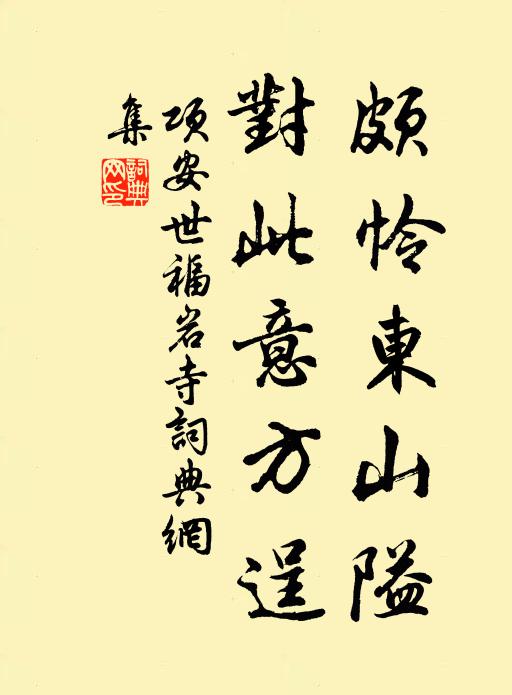 頗怜東山隘
對此意方逞
項安世福岩寺詞典網
集
詞典網印